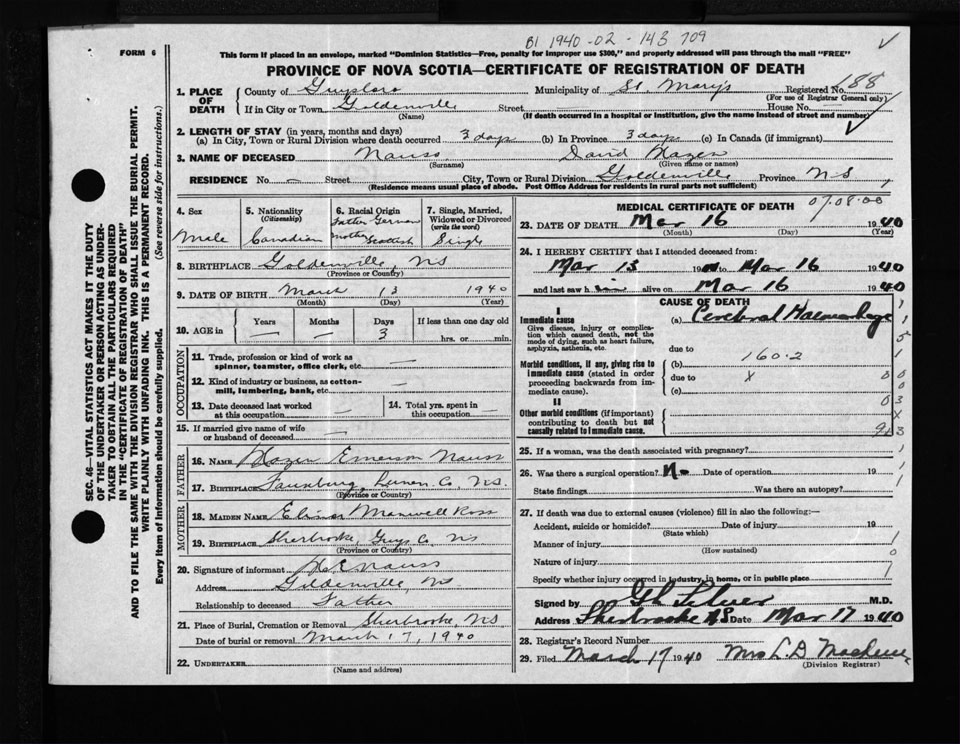 BI 1940-02-143 709
FORM 6
This form if placed in an envelope, marked "Dominion Statistics—Free, penalty for improper use $300," and properly addressed will pass through the mail "FREE"
PROVINCE OF NOVA SCOTIA—CERTIFICATE OF REGISTRATION OF DEATH
SEC. 46—VITAL STATISTICS ACT MAKES IT THE DUTY
OF THE UNDERTAKER OR PERSON ACTING AS UNDER-
TAKER TO OBTAIN ALL THE PARTICULARS REQUIRED
IN THE "CERTIFICATE OF REGISTRATION OF DEATH"
AND TO FILE THE SAME WITH THE DIVISION REGISTRAR WHO SHALL ISSUE THE BURIAL PERMIT.
WRITE PLAINLY WITH UNFADING INK. THIS IS A PERMANENT RECORD.
Every item of Information should be carefully supplied. (See reverse side for instructions.)
1. PLACE OF DEATH
County of Guysboro Municipality of St. Mary's Registered No. 188
(For use of Registrar General only)
If in City or Town Goldenville Street House No.
(Name) (If death occurred in a hospital or institution, give the name instead of street and number)
2. LENGTH OF STAY (in years, months and days)
(a) In City, Town or Rural Division where death occurred 3 days (b) In Province 3 days (c) In Canada (if immigrant)
3. NAME OF DECEASED Nauss David Hazen
(Surname) (Given name or names)
RESIDENCE No. — Street City, Town or Rural Division Goldenville Province N.S.
(Residence means usual place of abode. Post Office Address for residents in rural parts not sufficient)
4. Sex
Male
5. Nationality
(Citizenship)
Canadian
6. Racial Origin
Father German
Mother Scottish
7. Single, Married,
Widowed or Divorced
(write the word)
Single
8. BIRTHPLACE Goldenville, NS
(Province or Country)
9. DATE OF BIRTH March 13 1940
(Month) (Day) (Year)
10. AGE in Years — Months — Days 3 If less than one day old
hrs. or min.
OCCUPATION
11. Trade, profession or kind of work as
spinner, teamster, office clerk, etc. —
12. Kind of industry or business, as cotton-
mill, lumbering, bank, etc. —
13. Date deceased last worked
at this occupation —
14. Total yrs. spent in
this occupation —
15. If married give name of wife
or husband of deceased —
FATHER
16. NAME Hazen Emerson Nauss
17. BIRTHPLACE Lunen. Co., N.S.
(Province or Country)
MOTHER
18. MAIDEN NAME Maxwell Ross
19. BIRTHPLACE Sherbrooke, Guys Co, NS
(Province or Country)
20. Signature of informant H E Nauss
Address Goldenville, NS
Relationship to deceased Father
21. Place of Burial, Cremation or Removal Sherbrooke, NS
Date of burial or removal March 17, 1940
22. UNDERTAKER
(Name and address)
MEDICAL CERTIFICATE OF DEATH 07.08.00
23. DATE OF DEATH Mar 16 1940
(Month) (Day) (Year)
24. I HEREBY CERTIFY that I attended deceased from:
Mar 13 19 to Mar 16 1940
and last saw him alive on Mar 16 1940
CAUSE OF DEATH
I
Immediate cause
Give disease, injury or complica-
tion which caused death, not the
mode of dying, such as heart failure,
asphyxia, asthenia, etc.
(a) Cerebral Haemorrhage
due to
Morbid conditions, if any, giving rise to
immediate cause (stated in order
proceeding backwards from im-
mediate cause).
(b) 160.2
due to X
(c)
II
Other morbid conditions (if important)
contributing to death but not
causally related to immediate cause.
25. If a woman, was the death associated with pregnancy?
26. Was there a surgical operation? No Date of operation 19
State findings Was there an autopsy?
27. If death was due to external causes (violence) fill in also the following:—
Accident, suicide or homicide? Date of injury 19
(State which)
Manner of injury
(How sustained)
Nature of injury
Specify whether injury occurred in industry, in home, or in public place
Signed by M.D.
Address Sherbrooke NS Date Mar 17 1940
28. Registrar's Record Number
29. Filed March 17 1940 Mrs L. D.
(Division Registrar)